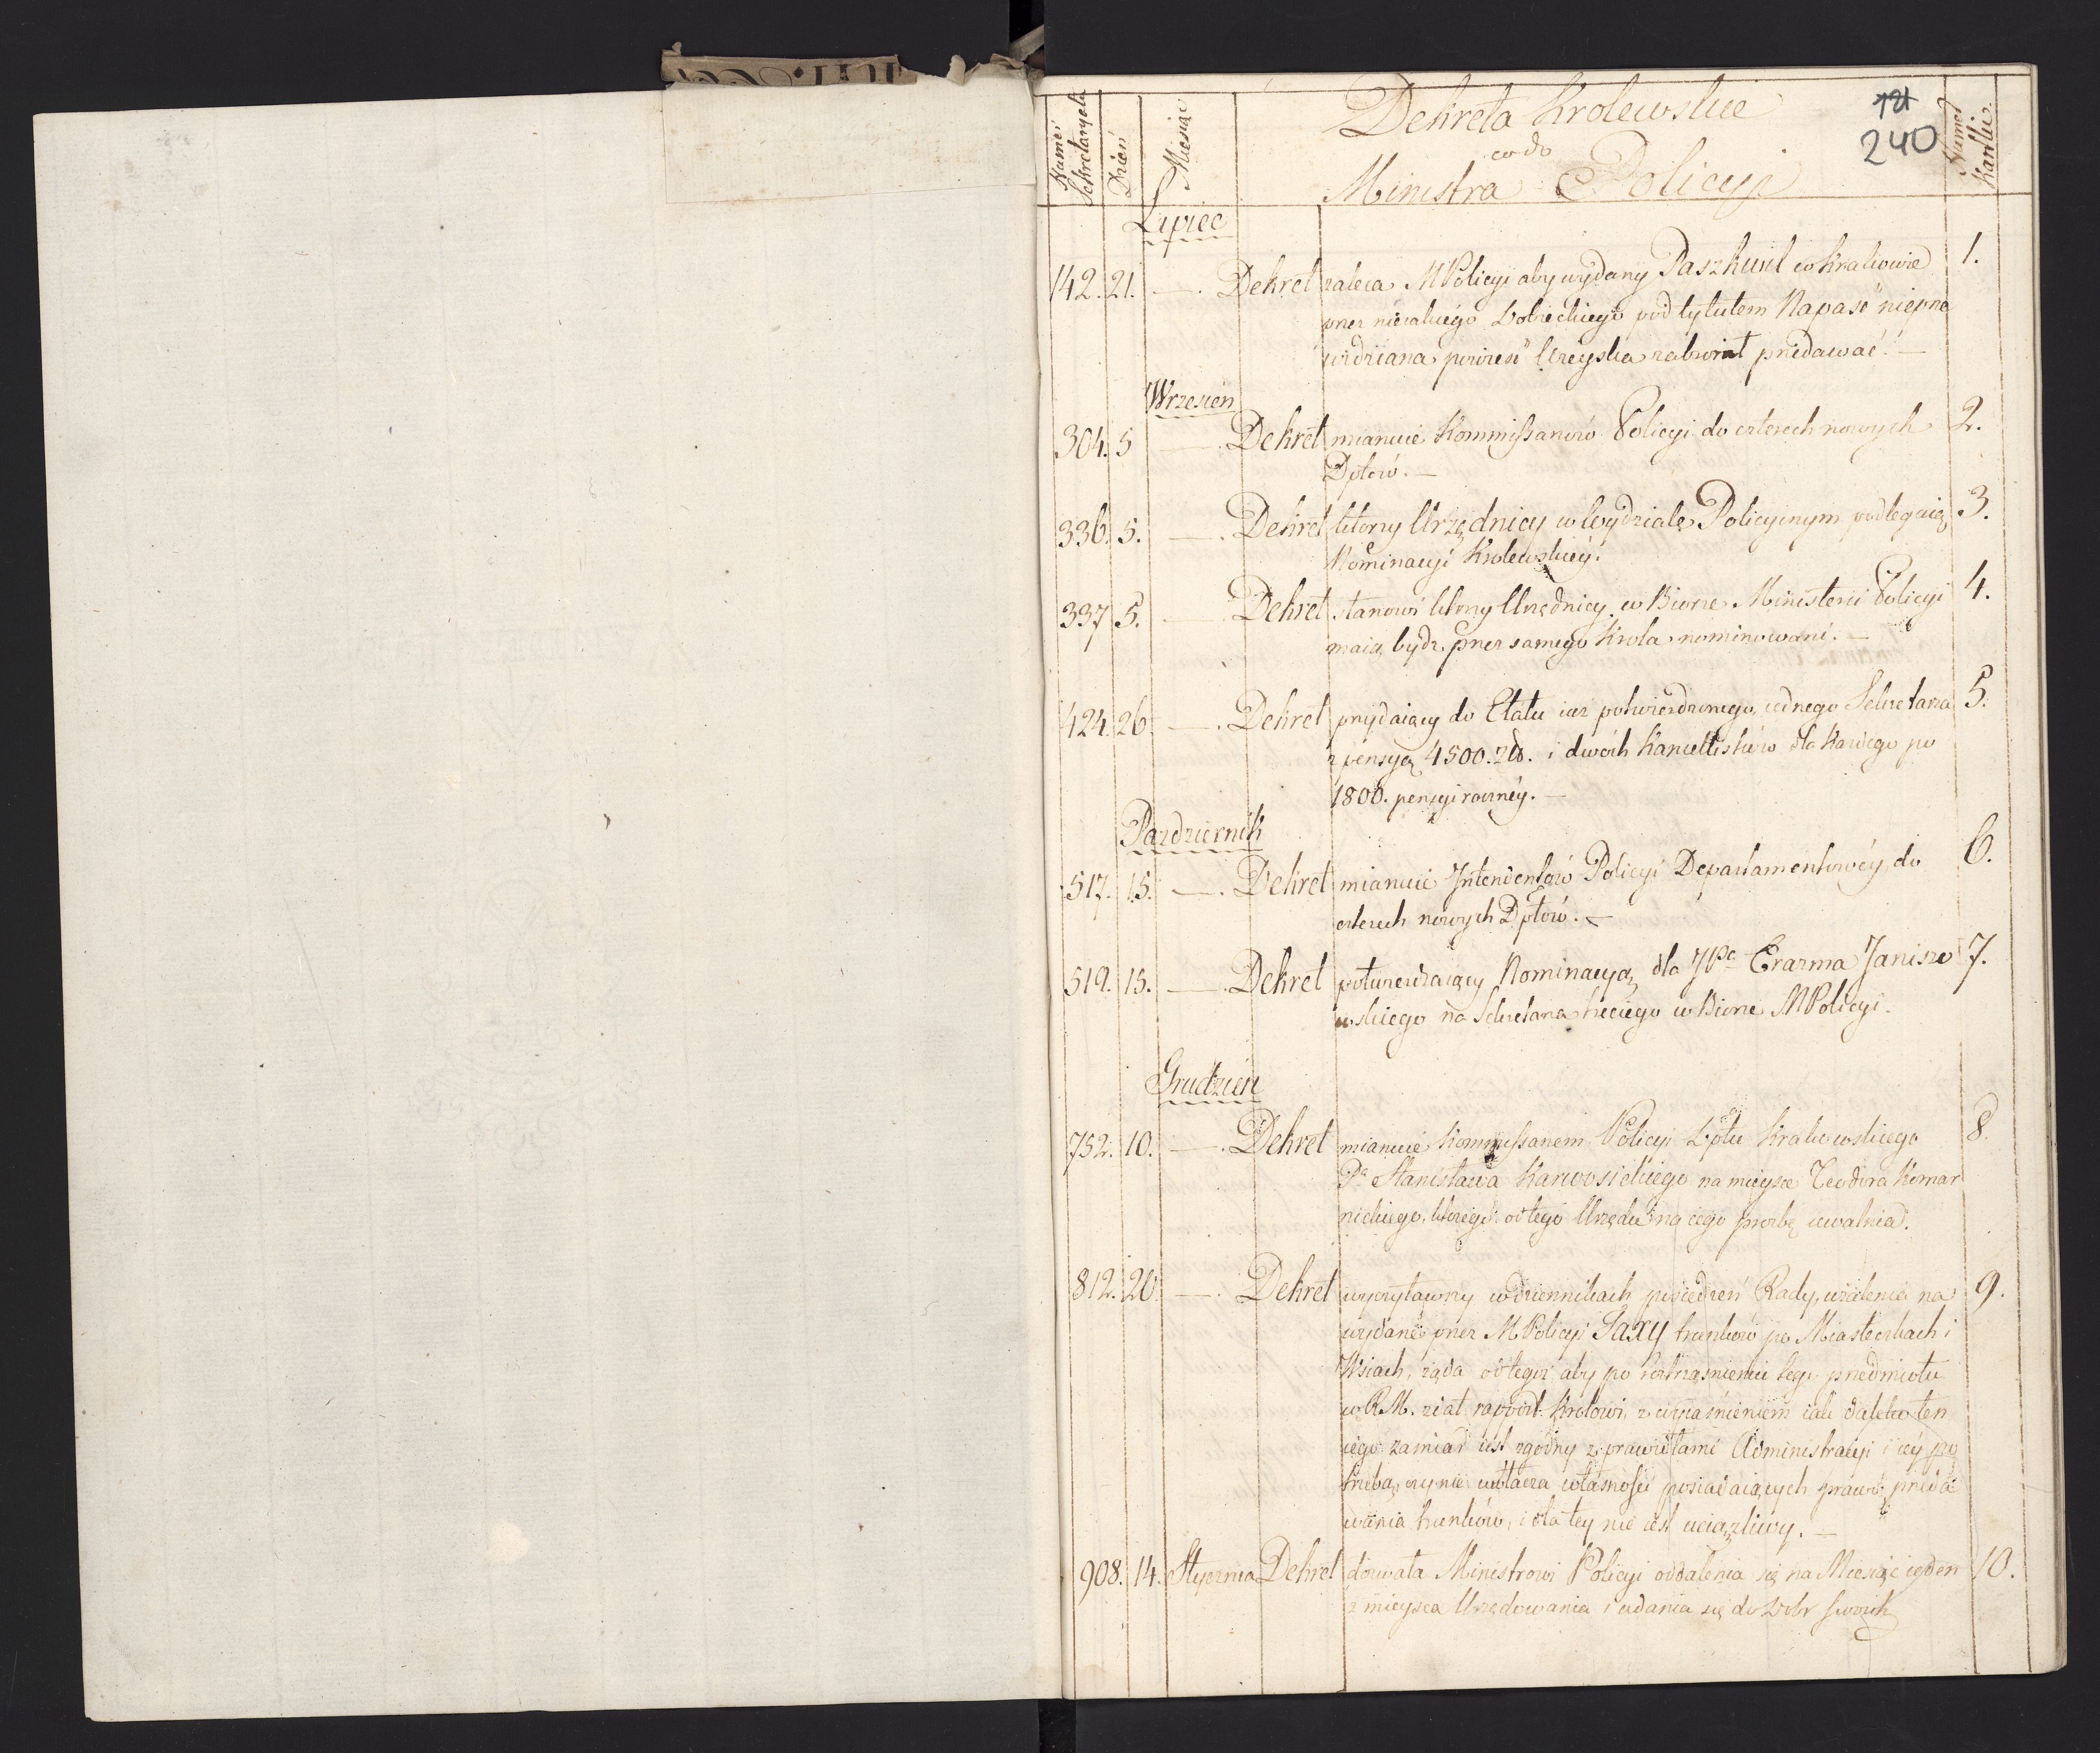 Numei Sekretaryatu
Dzień
Miesiąc
Dekreta Krolewskie
co do
Ministra Policyi
121
240
Numei Kartki
Lipiec
142. 21. —. Dekret zaleca MPolicyi aby wydany Paszkwil w Krakowie 1.
przez nieiakiego Dobieckiego pod tytułem Napaść nieprze
widziana powieść
Wrzesień
304. 5 —. Dekret mianuie Kommissarzów Policyi do czterech nowych 2.
Dptów. —
336. 5. —. Dekret którzy Urzędnicy w Wydziale Policyinym podlegaią 3.
Nominacyi Krolewskiey.
337 5. — Dekret stanowi którzy Urzędnicy w Biorze Ministerii Policyi 4.
maią bydź przez samego Krola nominowani. —
424. 26. —. Dekret przydaiący do Etatu iuż potwierdzonego iednego Sekretarza 5.
z pensyą 4500. zł. i dwóch Kancellistów dla każdego po
1800. pensyi roczney. —
Pazdziernik
517. 15. —. Dekret mianuie Intendentów Policyi Departamentowéy do 6.
czterech nowych Dptów. —
519. 15. —. Dekret potwierdzaiący Nominacyą dla JPa Erazma Janiszo 7.
wskiego na Sekretarza trzeciego w Biorze MPolicyi.
Grudzień
752. 10. —. Dekret mianuie Kommissarzem Policyi Dptu Krakowskiego 8.
Pa Stanisława Karwosieckiego na mieysce Teodora Komar
nickiego, którego od tego Urzędu na iego prozbę uwalnia.
812. 20. —. Dekret wyczytawszy w dziennikach posiedzeń Rady, użalenie na 9.
wydane przez MPolicyi Taxy trunków po Miasteczkach i
Wsiach, żąda od tegoż aby po roztrząśnieniu tego przedmiotu
w RM. zdał rapport Krolowi, z wyiaśnieniem iak daleko ten
iego zamiar iest zgodny z prawidłami Administracyi i iey po
trzebą, czy nie uwłacza własności posiadaiących prawo przeda
wania trunków, i dla tey nie iest uciążliwy. —
908. 14. Stycznia Dekret dozwala Ministrowi Policyi oddalenia się na Miesiąc ieden 10.
z mieysca Urzędowania i udania się do Dobr swoich